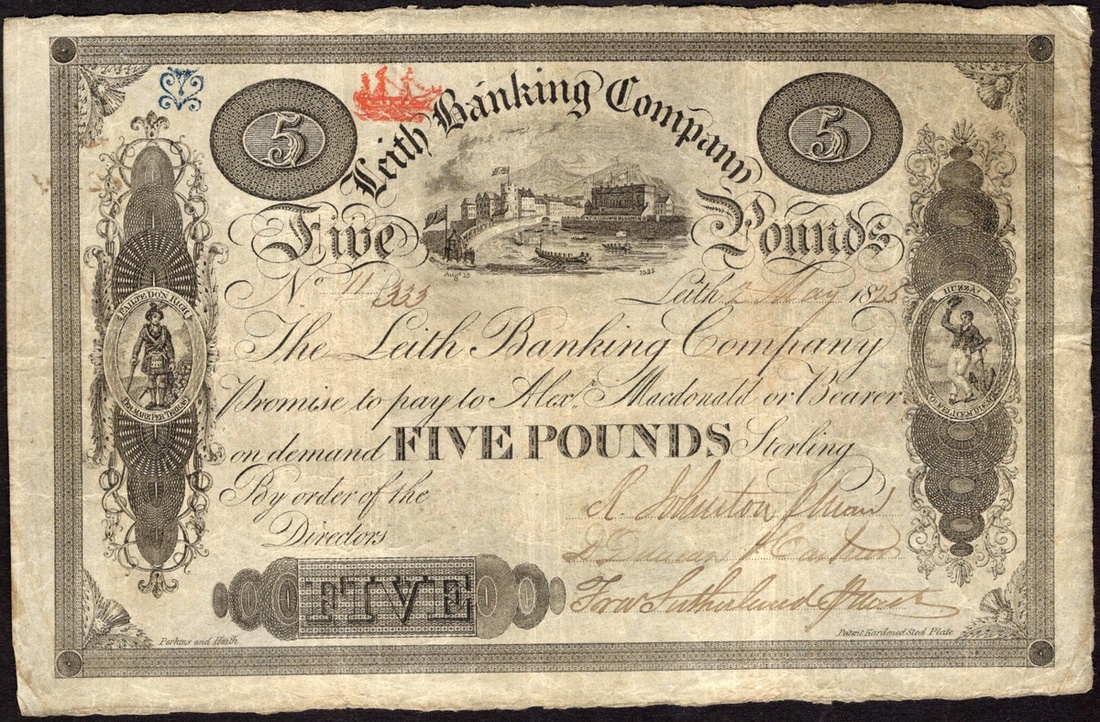 5 5
Leith Banking Company
Five Pounds
Augt 15 1822
No 11/333 Leith 2 May 1825
The Leith Banking Company
Promise to pay to Alexr Macdonald or Bearer
on demand FIVE POUNDS Sterling
By order of the
Directors
R. Johnston
FIVE
Perkins and Heath Patent Hardened Steel Plate
FAILTE DO'N RIGH
HUZZA!